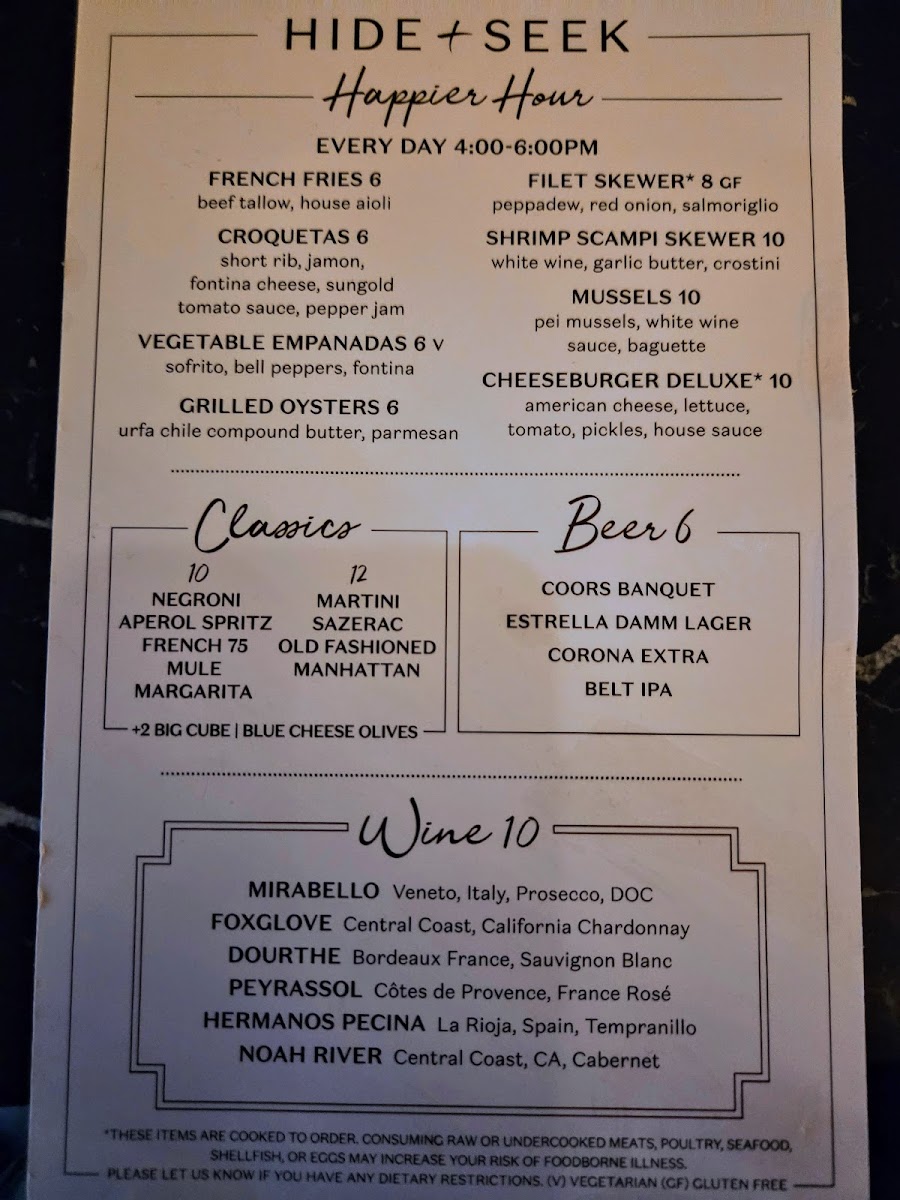 HIDE + SEEK
Happier Hour
EVERY DAY 4:00-6:00PM
FRENCH FRIES 6
beef tallow, house aioli
CROQUETAS 6
short rib, jamon,
fontina cheese, sungold
tomato sauce, pepper jam
VEGETABLE EMPANADAS 6 V
sofrito, bell peppers, fontina
GRILLED OYSTERS 6
urfa chile compound butter, parmesan
FILET SKEWER* 8 GF
peppadew, red onion, salmoriglio
SHRIMP SCAMPI SKEWER 10
white wine, garlic butter, crostini
MUSSELS 10
pei mussels, white wine
sauce, baguette
CHEESEBURGER DELUXE* 10
american cheese, lettuce,
tomato, pickles, house sauce
Classics
10
NEGRONI
APEROL SPRITZ
FRENCH 75
MULE
MARGARITA
12
MARTINI
SAZERAC
OLD FASHIONED
MANHATTAN
+2 BIG CUBE | BLUE CHEESE OLIVES
Beer 6
COORS BANQUET
ESTRELLA DAMM LAGER
CORONA EXTRA
BELT IPA
Wine 10
MIRABELLO Veneto, Italy, Prosecco, DOC
FOXGLOVE Central Coast, California Chardonnay
DOURTHE Bordeaux France, Sauvignon Blanc
PEYRASSOL Côtes de Provence, France Rosé
HERMANOS PECINA La Rioja, Spain, Tempranillo
NOAH RIVER Central Coast, CA, Cabernet
*THESE ITEMS ARE COOKED TO ORDER. CONSUMING RAW OR UNDERCOOKED MEATS, POULTRY, SEAFOOD,
SHELLFISH, OR EGGS MAY INCREASE YOUR RISK OF FOODBORNE ILLNESS.
PLEASE LET US KNOW IF YOU HAVE ANY DIETARY RESTRICTIONS. (V) VEGETARIAN (GF) GLUTEN FREE